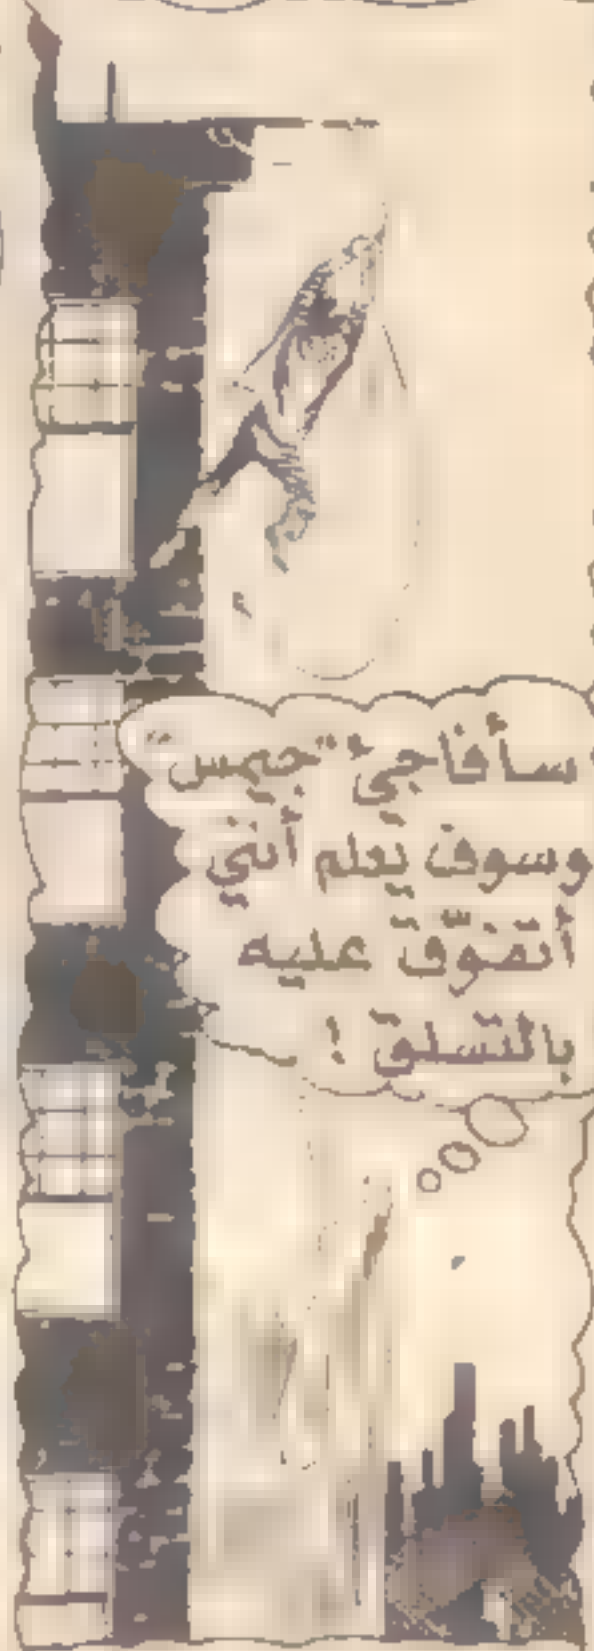 سأفاجئ "جيمس"
وسوف يعلم أنني
أتفوّق عليه
بالتسلق !